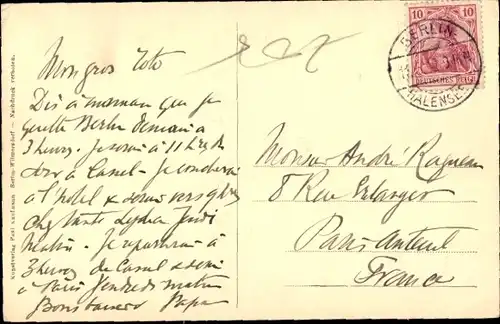 Mon gros Toto
Dis à maman que je
quitte Berlin demain à
3 heures. Je serai à 11 h
soir à Cassel - Je coucherai
à l'hôtel & vers 9 h
chez tante Lydia Jeudi
matin. Je repartirai à
3 heures de Cassel & serai
à Paris Vendredi matin
Bons baisers Papa
10 10
BERLIN
DEUTSCHES REICH
HALENSEE
Monsieur André
8 Rue Erlanger
Paris Auteuil
France
Berlin-Wilmersdorf — Nachdruck verboten.